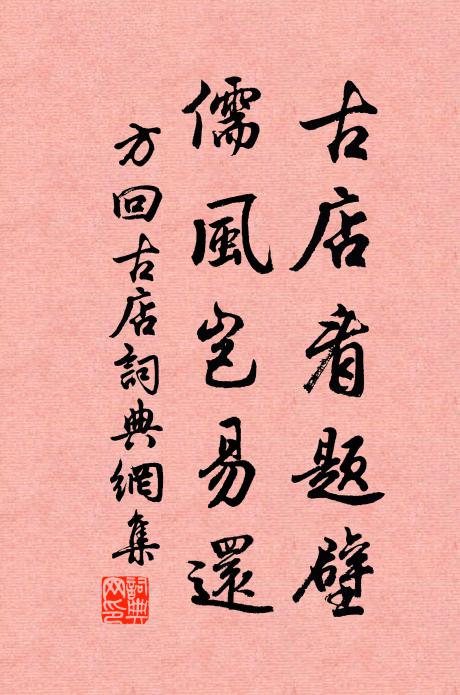 古店看題壁
儒風豈易還
方回古店詞典網集
詞典
网印